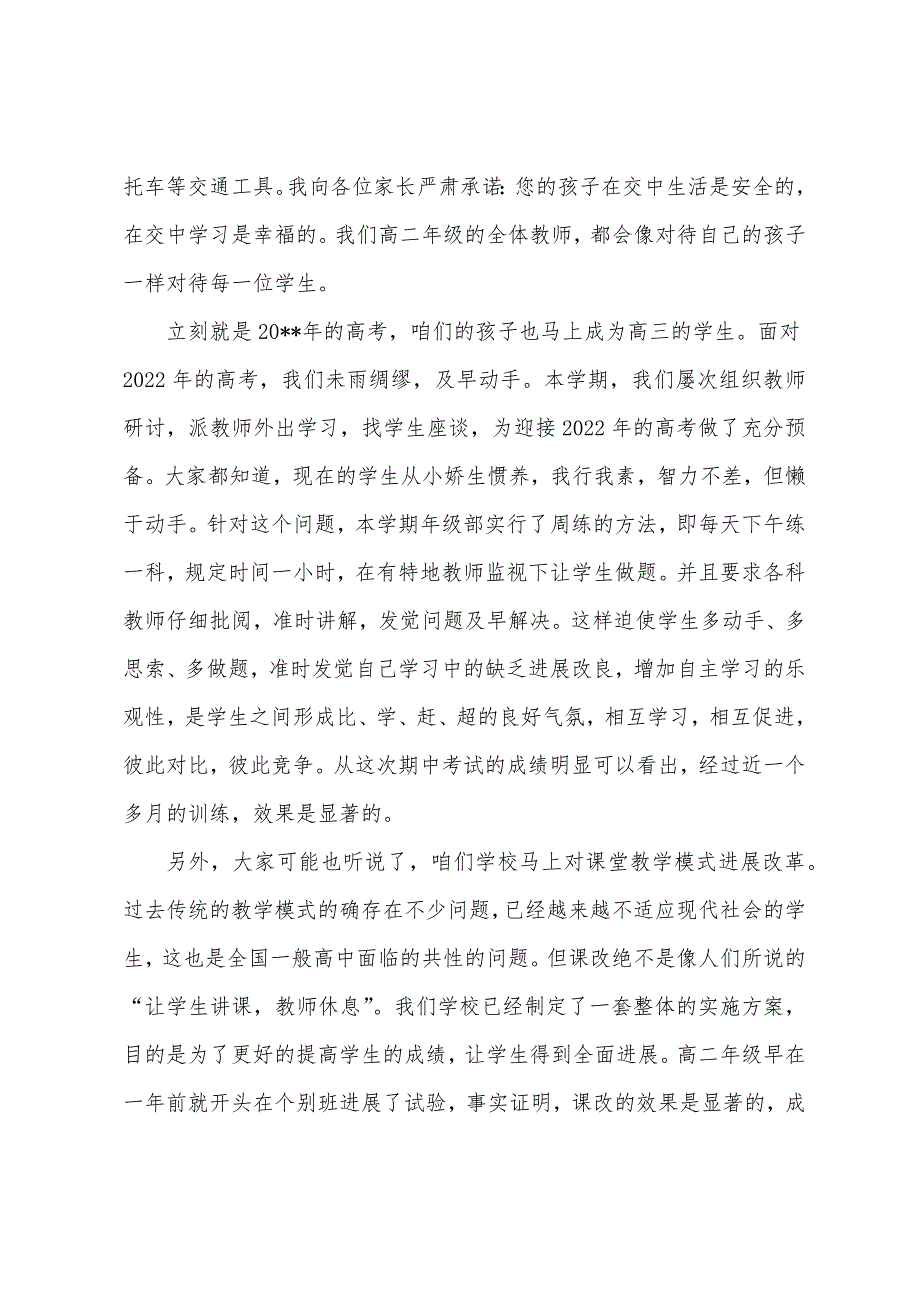 托车等交通工具。我向各位家长严肃承诺：您的孩子在交中生活是安全的，
在交中学习是幸福的。我们高二年级的全体教师，都会像对待自己的孩子
一样对待每一位学生。
立刻就是 20**年的高考，咱们的孩子也马上成为高三的学生。面对
2022 年的高考，我们未雨绸缪，及早动手。本学期，我们屡次组织教师
研讨，派教师外出学习，找学生座谈，为迎接 2022 年的高考做了充分预
备。大家都知道，现在的学生从小娇生惯养，我行我素，智力不差，但懒
于动手。针对这个问题，本学期年级部实行了周练的方法，即每天下午练
一科，规定时间一小时，在有特地教师监视下让学生做题。并且要求各科
教师仔细批阅，准时讲解，发觉问题及早解决。这样迫使学生多动手、多
思索、多做题，准时发觉自己学习中的缺乏进展改良，增加自主学习的乐
观性，是学生之间形成比、学、赶、超的良好气氛，相互学习，相互促进，
彼此对比，彼此竞争。从这次期中考试的成绩明显可以看出，经过近一个
多月的训练，效果是显著的。
另外，大家可能也听说了，咱们学校马上对课堂教学模式进展改革。
过去传统的教学模式的确存在不少问题，已经越来越不适应现代社会的学
生，这也是全国一般高中面临的共性的问题。但课改绝不是像人们所说的
“让学生讲课，教师休息”。我们学校已经制定了一套整体的实施方案，
目的是为了更好的提高学生的成绩，让学生得到全面进展。高二年级早在
一年前就开头在个别班进展了试验，事实证明，课改的效果是显著的，成